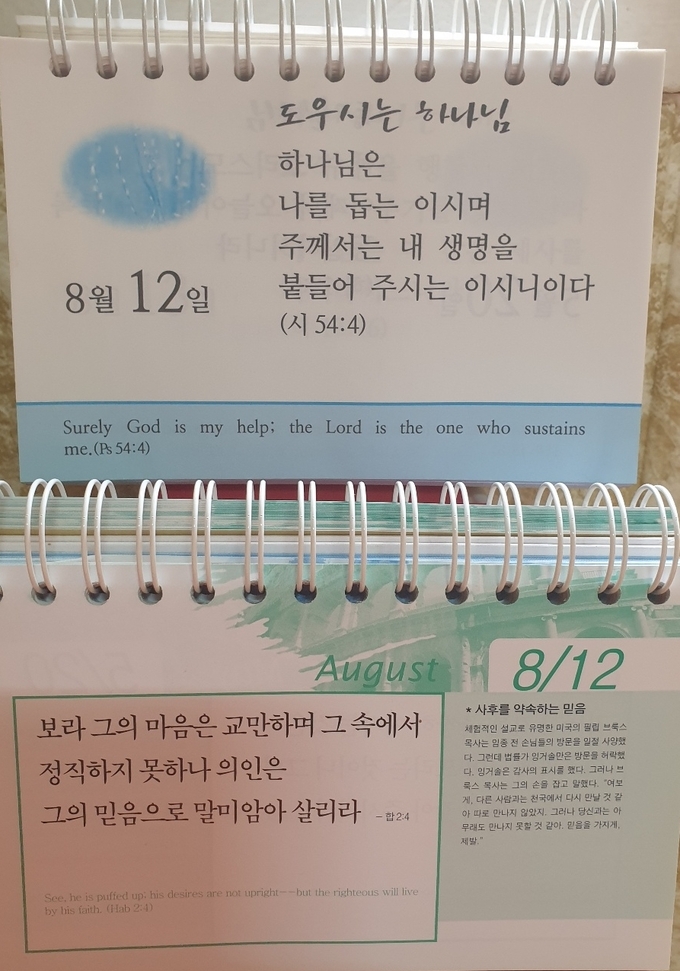 도우시는 하나님
하나님은
나를 돕는 이시며
주께서는 내 생명을
붙들어 주시는 이시니이다
(시 54:4)
8월 12일
Surely God is my help; the Lord is the one who sustains
me.(Ps 54:4)
August
8/12
보라 그의 마음은 교만하며 그 속에서
정직하지 못하나 의인은
그의 믿음으로 말미암아 살리라 - 합 2:4
See, he is puffed up; his desires are not upright--but the righteous will live
by his faith. (Hab 2:4)
* 사후를 약속하는 믿음
체험적인 설교로 유명한 미국의 필립 브룩스
목사는 임종 전 손님들의 방문을 일절 사양했
다. 그런데 법률가 잉거솔만은 방문을 허락했
다. 잉거솔은 감사의 표시를 했다. 그러나 브
룩스 목사는 그의 손을 잡고 말했다. "여보
게, 다른 사람과는 천국에서 다시 만날 것 같
아 따로 만나지 않았지. 그러나 당신과는 아
무래도 만나지 못할 것 같아. 믿음을 가지게,
제발."